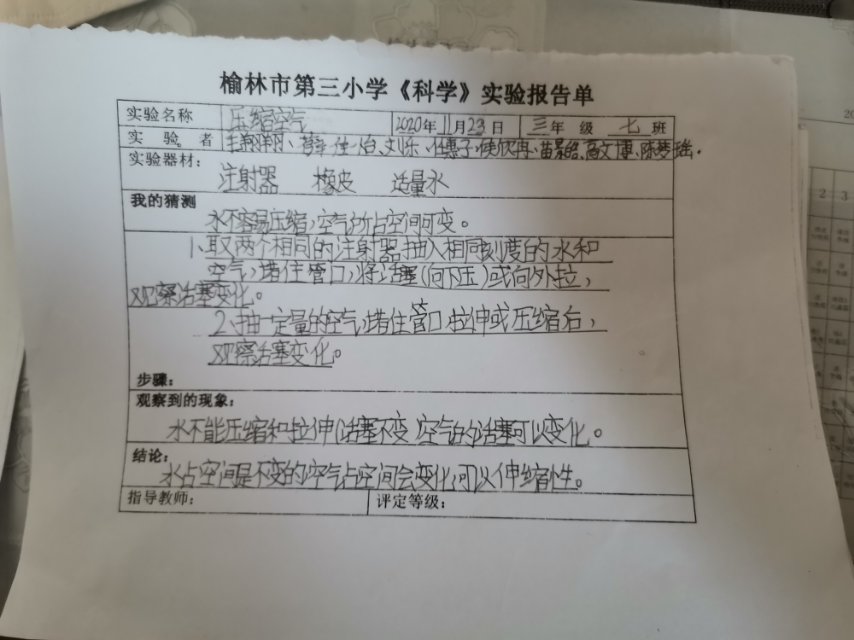 榆林市第三小学《科学》实验报告单
实验名称 压缩空气 2020年11月23日 三年级 七班
实验者 刘乐、高文博、陈梦瑶.
实验器材:
注射器 橡皮 适量水
我的猜测
水不容易压缩,空气所占空间可变。
1、取两个相同的注射器抽入相同刻度的水和
空气,堵住管口,将活塞(向下压)或向外拉,
观察活塞变化。
2、抽一定量的空气堵住管口拉伸或压缩后,
观察活塞变化。
步骤:
观察到的现象:
水不能压缩和拉伸活塞不变 空气的活塞可以变化。
结论:
水占空间是不变的空气占空间会变化可以伸缩性。
指导教师: 评定等级: